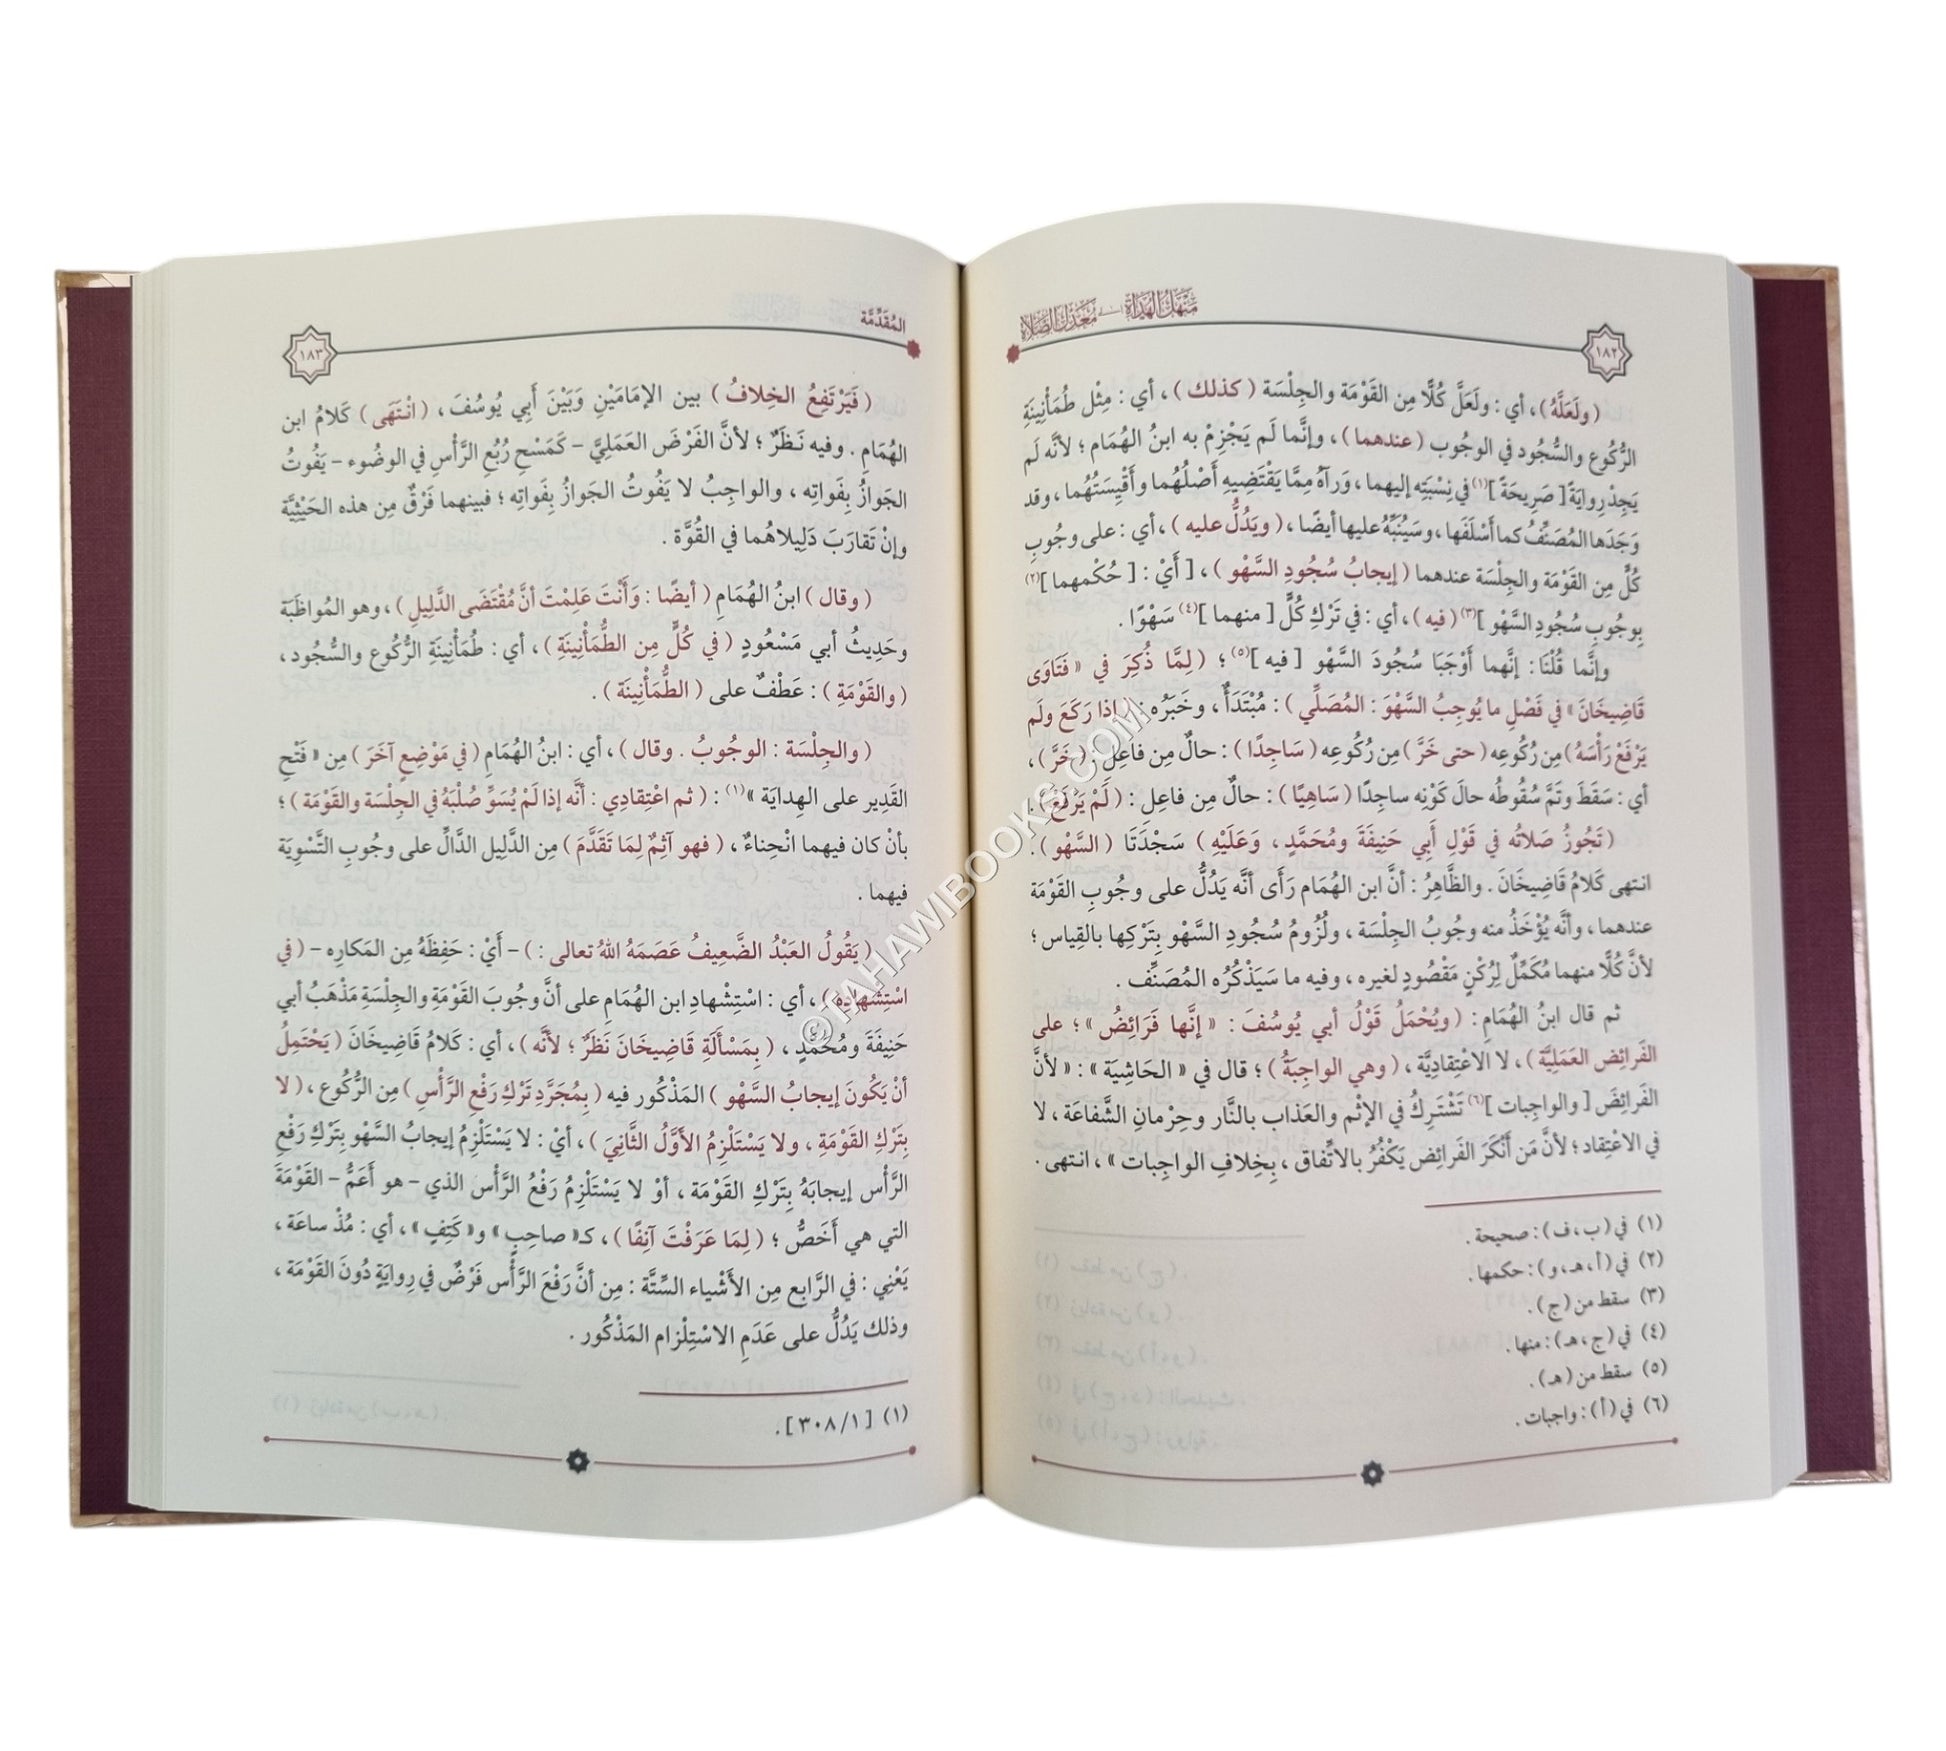 مَنْهَلُ الهُدَاةِ إلى مُعَدِّلِ الصَّلَاةِ
١٨٢
( ولَعَلَّهُ ) ، أي : ولَعَلَّ كُلًّا مِن القَوْمَة والجِلْسَة ( كذلك ) ، أي : مِثْل طُمَأْنِينَةِ
الرُّكُوعِ والسُّجُود في الوجُوب ( عندهما ) ، وإنَّما لَم يَجْزِمْ به ابنُ الهُمَام ؛ لأنَّه لَم
يَجِدْ رِوايَةً [ صَرِيحَةً ](١) في نِسْبَتِه إليهما ، وَرَآهُ مِمَّا يَقْتَضِيهِ أَصْلُهُما وأَقْيِسَتُهُما ، وقد
وَجَدَها المُصَنِّفُ كما أَسْلَفَها ، وسَيُنَبِّهُ عليها أيضًا ، ( ويَدُلُّ عليه ) ، أي : على وجُوبِ
كُلٍّ مِن القَوْمَة والجِلْسَة عندهما ( إيجابُ سُجُودِ السَّهْو ) ، [ أَيْ : [ حُكْمهما ](٢)
بِوجُوبِ سُجُودِ السَّهْو ](٣) ( فيه ) ، أي : في تَرْكِ كُلٍّ [ منهما ](٤) سَهْوًا .
وإنَّما قُلْنَا : إنَّهما أَوْجَبَا سُجُودَ السَّهْو [ فيه ](٥) ؛ ( لِمَّا ذُكِرَ في « فَتَاوَى
قَاضِيخَانَ » في فَصْلِ ما يُوجِبُ السَّهْوَ : المُصَلِّي ) : مُبْتَدَأٌ ، وخَبَرُه : ( إذا رَكَعَ ولَم
يَرْفَعْ رَأْسَهُ ) مِن رُكُوعِه ( حتى خَرَّ ) مِن رُكُوعِه ( سَاجِدًا ) : حالٌ مِن فاعِلِ : ( خَرَّ ) ،
أي : سَقَطَ وتَمَّ سُقُوطُه حالَ كَوْنِه ساجِدًا ( سَاهِيًا ) : حالٌ مِن فاعِلِ : ( لَمْ يَرْفَعْ ) .
( تَجُوزُ صَلاتُه في قَوْلِ أَبِي حَنِيفَةَ ومُحَمَّدٍ ، وَعَلَيْهِ ) سَجْدَتَا ( السَّهْو ) .
انتهى كَلامُ قَاضِيخَانَ . والظَّاهِرُ : أنَّ ابن الهُمَام رَأَى أنَّه يَدُلُّ على وجُوبِ القَوْمَة
عندهما ، وأنَّه يُؤْخَذُ منه وجُوبُ الجِلْسَة ، ولُزُومُ سُجُودِ السَّهْو بِتَرْكِها بالقِياس ؛
لأنَّ كُلًّا منهما مُكَمِّلٌ لِرُكْنٍ مَقْصُودٍ لغيره ، وفيه ما سَيَذْكُرُه المُصَنِّف .
ثم قال ابنُ الهُمَامِ : ( ويُحْمَلُ قَوْلُ أبي يُوسُفَ : « إنَّها فَرَائِضُ » ؛ على
الفَرائِض العَمَلِيَّة ) ، لا الاعْتِقادِيَّة ، ( وهي الواجِبَةُ ) ؛ قال في « الحَاشِيَة » : « لأنَّ
الفَرائِضَ [ والواجِبات ](٦) تَشْتَرِكُ في الإثْم والعَذاب بالنَّار وحِرْمانِ الشَّفاعَة ، لا
في الاعْتِقاد ؛ لأنَّ مَن أَنْكَرَ الفَرائِض يَكْفُرُ بالاتِّفاق ، بِخِلافِ الواجِبات » ، انتهى .
(١) في ( ب ، ف ) : صحيحة .
(٢) في ( أ ، هـ ، و ) : حكمها .
(٣) سقط من ( ج ) .
(٤) في ( ج ، هـ ) : منها .
(٥) سقط من ( هـ ) .
(٦) في ( أ ) : واجبات .
المُقَدِّمَة
١٨٣
( فَيَرْتَفِعُ الخِلافُ ) بين الإمَامَيْنِ وَبَيْنَ أَبِي يُوسُفَ ، ( انْتَهَى ) كَلامُ ابن
الهُمَامِ . وفيه نَظَرٌ ؛ لأنَّ الفَرْضَ العَمَلِيَّ - كَمَسْحِ رُبُعِ الرَّأْسِ في الوضُوء - يَفُوتُ
الجَوازُ بِفَواتِه ، والواجِبُ لا يَفُوتُ الجَوازُ بِفَواتِه ؛ فبينهما فَرْقٌ مِن هذه الحَيْثِيَّة
وإنْ تَقارَبَ دَلِيلاهُما في القُوَّة .
( وقال ) ابنُ الهُمَامِ ( أيضًا : وَأَنْتَ عَلِمْتَ أنَّ مُقْتَضَى الدَّلِيلِ ) ، وهو المُواظَبَة
وحَدِيثُ أبي مَسْعُودٍ ( في كُلٍّ مِن الطُّمَأْنِينَةِ ) ، أي : طُمَأْنِينَةِ الرُّكُوعِ والسُّجُود ،
( والقَوْمَةِ ) : عَطْفٌ على ( الطُّمَأْنِينَة ) .
( والجِلْسَة : الوجُوبُ . وقال ) ، أي : ابنُ الهُمَامِ ( في مَوْضِعٍ آخَرَ ) مِن « فَتْحِ
القَدِير على الهِدايَة »(١) : ( ثم اعْتِقادِي : أنَّه إذا لَمْ يُسَوِّ صُلْبَهُ في الجِلْسَة والقَوْمَة ) ؛
بأنْ كان فيهما انْحِناءٌ ، ( فهو آثِمٌ لِمَا تَقَدَّمَ ) مِن الدَّلِيل الدَّالِّ على وجُوبِ التَّسْوِيَة
فيهما .
( يَقُولُ العَبْدُ الضَّعِيفُ عَصَمَهُ اللهُ تعالى : ) - أَيْ : حَفِظَهُ مِن المَكارِه - ( في
اسْتِشْهادِه ) ، أي : اسْتِشْهادِ ابن الهُمَامِ على أنَّ وجُوبَ القَوْمَةِ والجِلْسَةِ مَذْهَبُ أبي
حَنِيفَةَ ومُحَمَّدٍ ، ( بِمَسْأَلَةِ قَاضِيخَانَ نَظَرٌ ؛ لأنَّه ) ، أي : كَلامُ قَاضِيخَانَ ( يَحْتَمِلُ
أنْ يَكُونَ إيجابُ السَّهْو ) المَذْكُور فيه ( بِمُجَرَّدِ تَرْكِ رَفْعِ الرَّأْس ) مِن الرُّكُوع ، ( لا
بِتَرْكِ القَوْمَةِ ، ولا يَسْتَلْزِمُ الأَوَّلُ الثَّانِيَ ) ، أَيْ : لا يَسْتَلْزِمُ إيجابُ السَّهْو بِتَرْكِ رَفْعِ
الرَّأْس إيجابَهُ بِتَرْكِ القَوْمَة ، أوْ لا يَسْتَلْزِمُ رَفْعُ الرَّأْس الذي - هو أَعَمُّ - القَوْمَةَ
التي هي أَخَصُّ ؛ ( لِمَا عَرَفْتَ آنِفًا ) ، كـ« صاحِبٍ » و« كَتِفٍ » ، أي : مُذْ ساعَة ،
يَعْنِي : في الرَّابِعِ مِن الأَشْياء السِّتَّة : مِن أنَّ رَفْعَ الرَّأْس فَرْضٌ في رِوايَةٍ دُونَ القَوْمَة ،
وذلك يَدُلُّ على عَدَمِ الاسْتِلْزام المَذْكُور .
(١) [ ٣٠٨/١ ] .
©TAHAWIBOOKS.COM